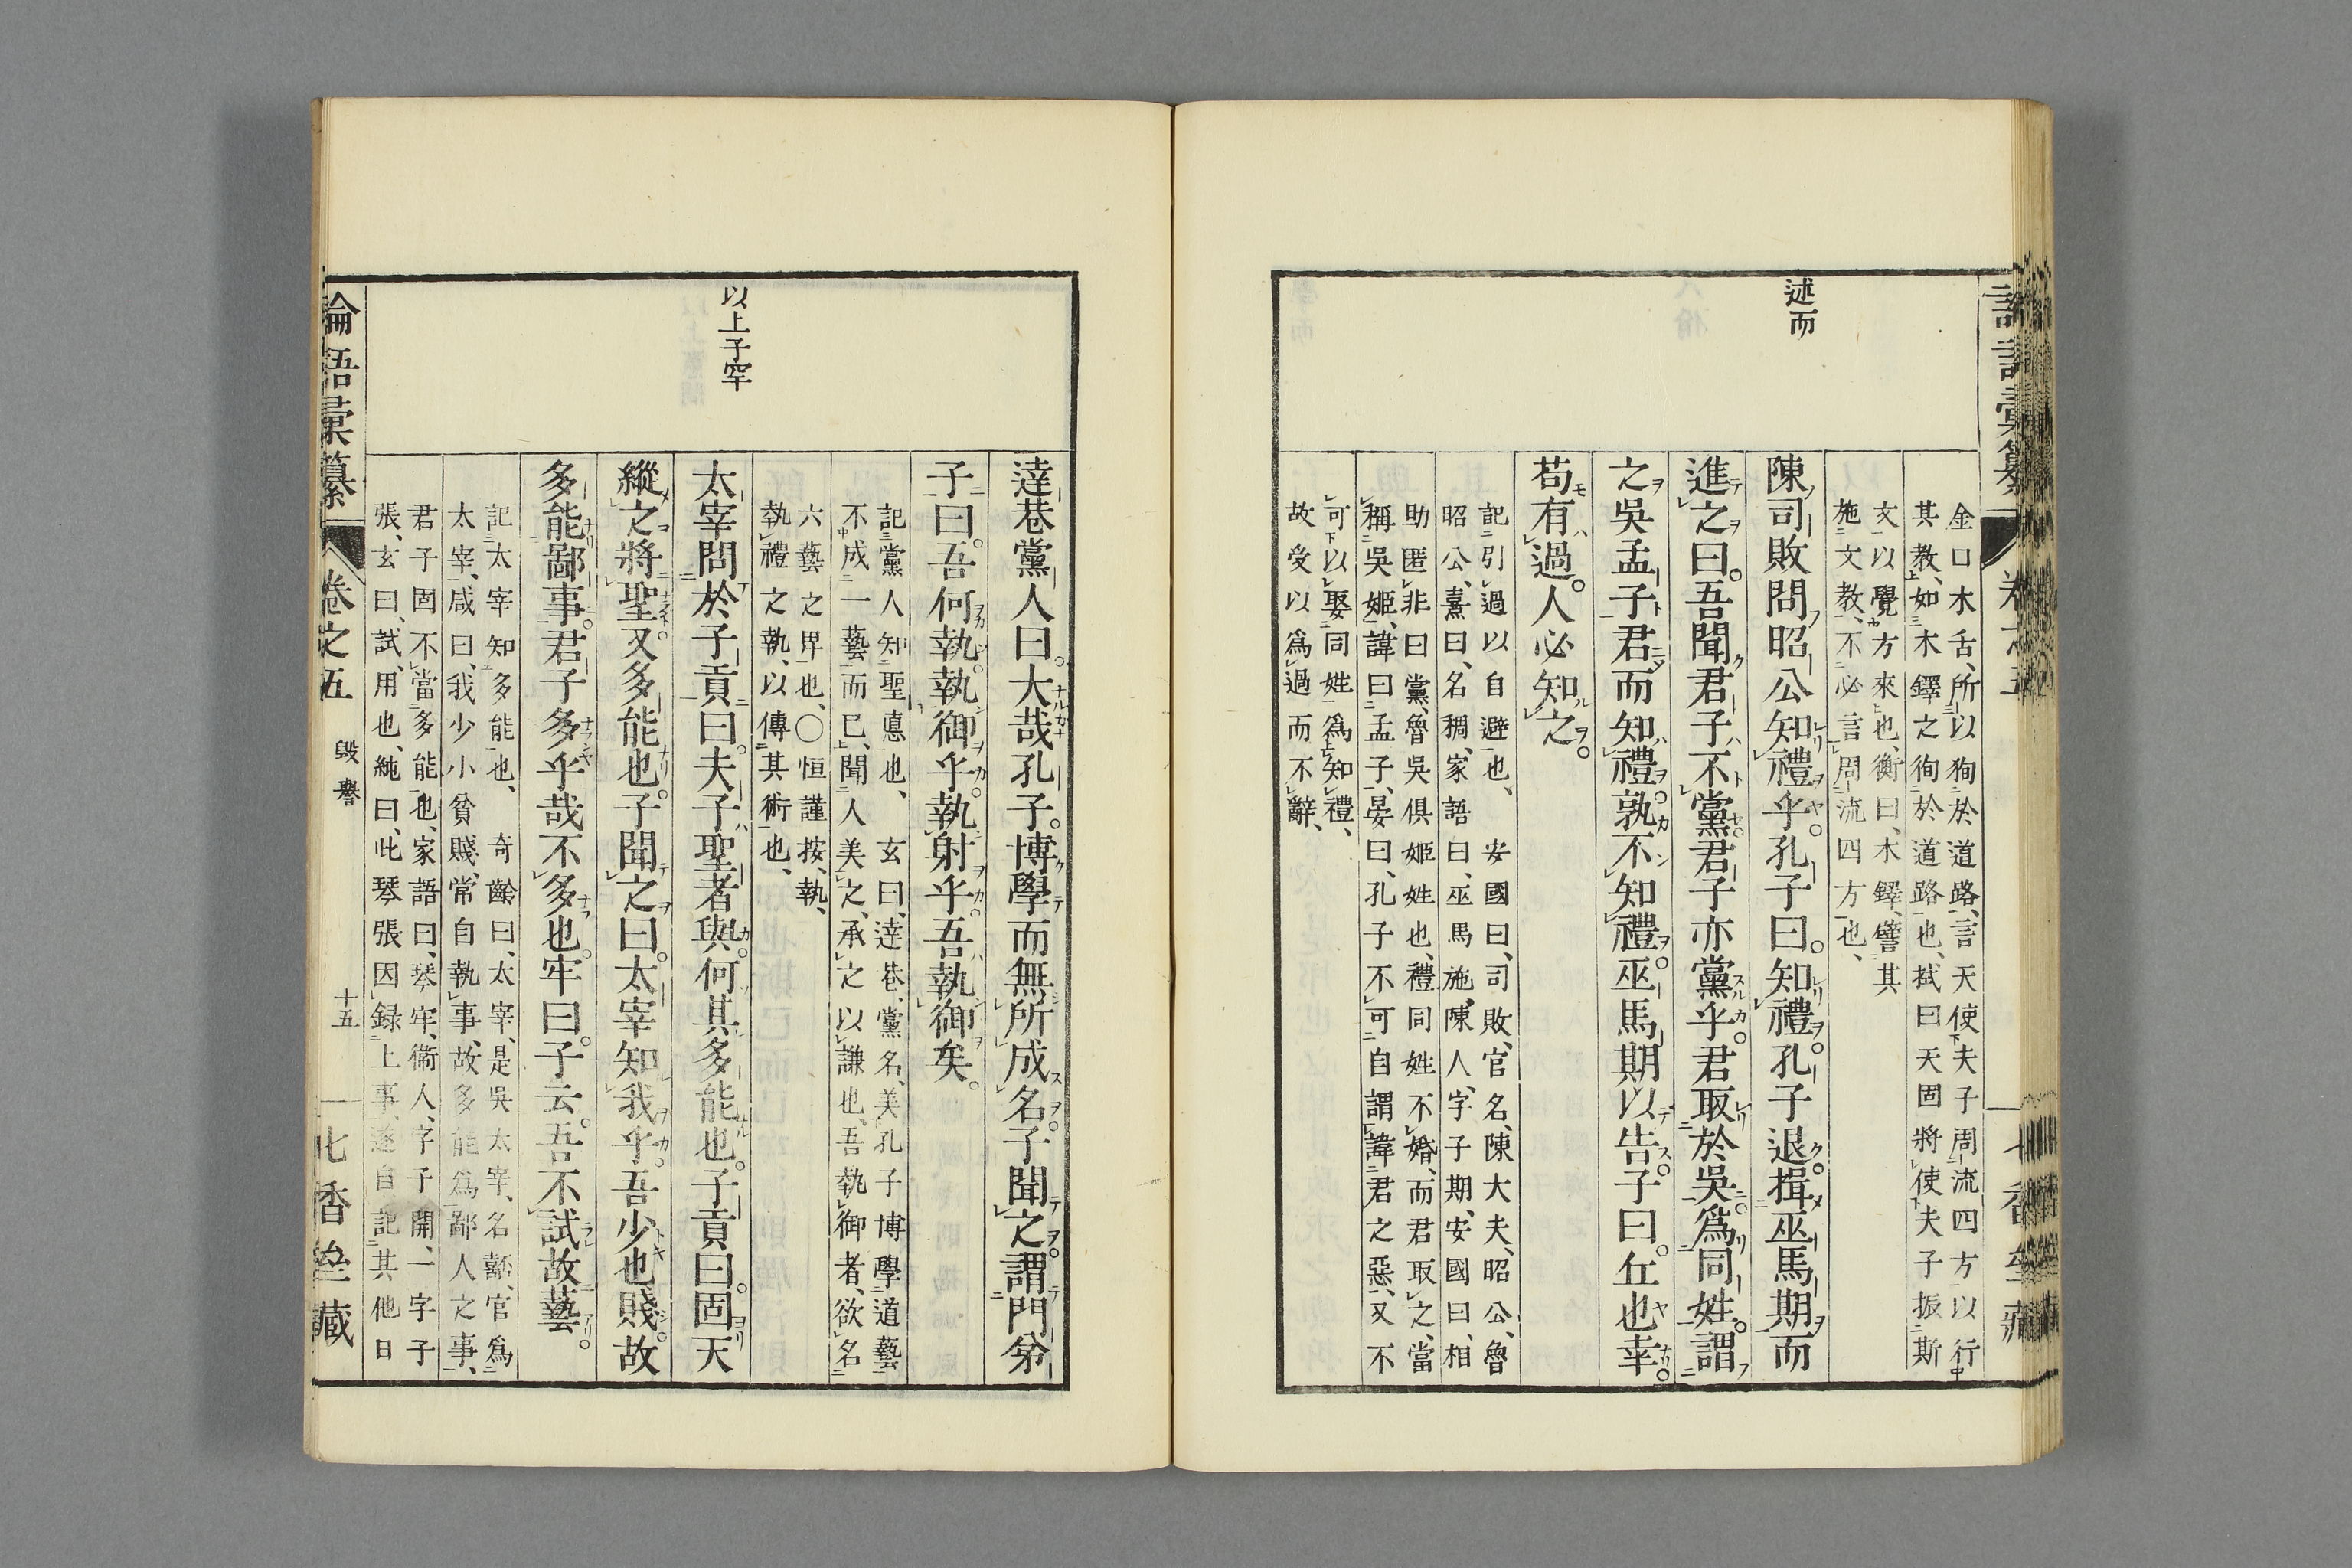 述而
金口木舌、所以狥於道路、言天使夫子周流四方以行
其教、如木鐸之徇於道路也、栻曰天固將使夫子振斯
文以覺方來也、衡曰、木鐸、譬其
施文教、不必言周流四方也、
陳司敗問昭公知禮乎。孔子曰。知禮。孔子退。揖巫馬期而
進之曰。吾聞君子不黨。君子亦黨乎。君取於吳。爲同姓。謂
之吳孟子。君而知禮。孰不知禮。巫馬期以告。子曰。丘也幸。
苟有過。人必知之。
記引過以自避也、安國曰、司敗、官名、陳大夫、昭公、魯
昭公、熹曰、名稠、家語曰、巫馬施、陳人、字子期、安國曰、相
助匿非曰黨、魯吳俱姬姓也、禮同姓不婚、而君取之、當
稱吳姬、諱曰孟子、晏曰、孔子不可自謂諱君之惡、又不
可以娶同姓爲知禮、
故受以爲過而不辭、
以上子罕
達巷黨人曰。大哉孔子。博學而無所成名。子聞之。謂門弟
子曰。吾何執。執御乎。執射乎。吾執御矣。
記黨人知聖悳也、玄曰、達巷、黨名、美孔子博學道藝
不成一藝而已、聞人美之、承之以謙也、吾執御者、欲名
六藝之卑也、○恒謹按、執、
執禮之執、以傳其術也、
太宰問於子貢曰。夫子聖者與。何其多能也。子貢曰。固天
縱之將聖。又多能也。子聞之曰。太宰知我乎。吾少也賤。故
多能鄙事。君子多乎哉不多也。牢曰。子云。吾不試故藝。
記太宰知多能也、奇齡曰、太宰、是吳太宰、名嚭、官爲
太宰、咸曰、我少小貧賤、常自執事、故多能爲鄙人之事、
君子固不當多能也、家語曰、琴牢、衞人、字子開、一字子
張、玄曰、試、用也、純曰、此琴張因録上事、遂自記其他日
論語彙纂 卷之五 毀譽 十五 七香亝藏